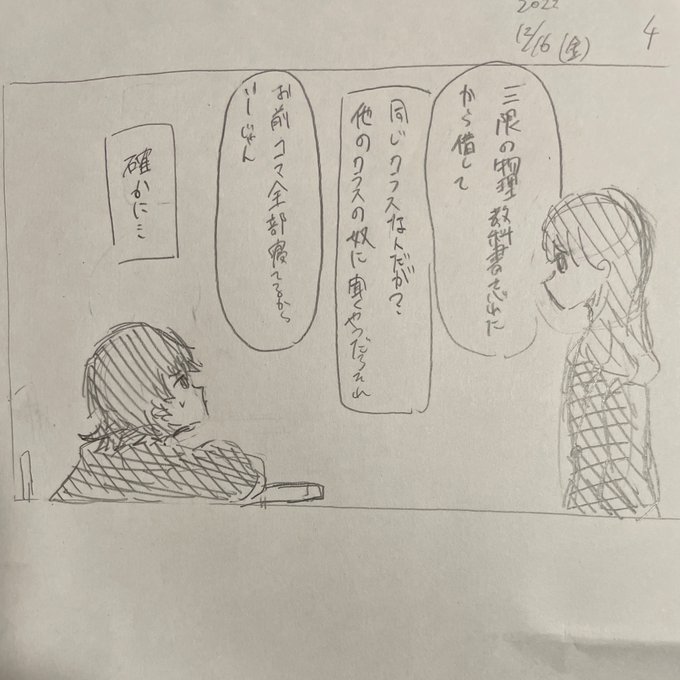 2022
12/16 (金)
4
三限の物理教科書忘れた
から借して
同じクラスなんだが?
他のクラスの奴に聞くやつだろそれ
お前コマ全部寝てるから
いーじゃん
確かに…